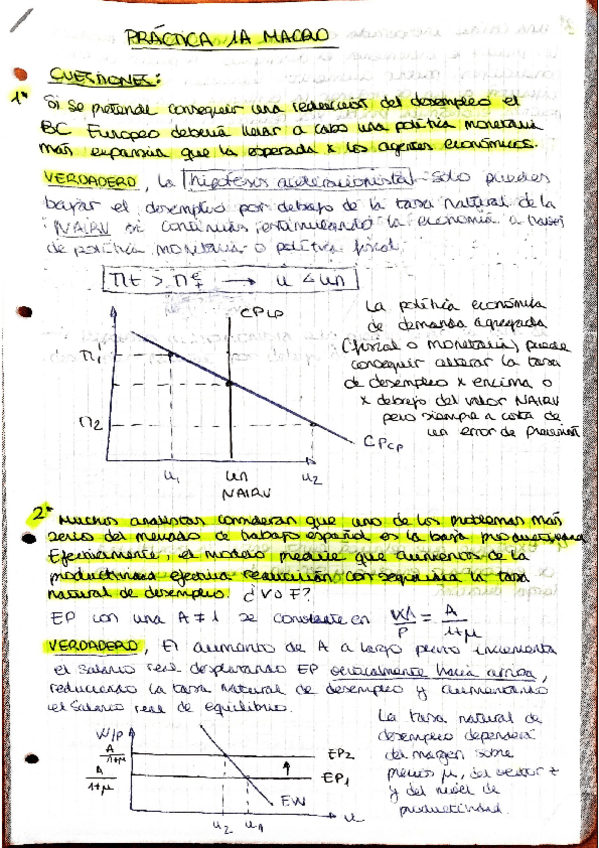 PRÁCTICA 1A MACRO
CUESTIONES:
1ª Si se pretende conseguir una reducción del desempleo el
BC Europeo debería llevar a cabo una política monetaria
más expansiva que la esperada x los agentes económicos.
VERDADERO, la hipótesis aceleracionista solo puedes
bajar el desempleo por debajo de la tasa natural de la
NAIRU si continúas estimulando la economía a través
de política monetaria o política fiscal.
Πt > Πe → u < un
CPLP
La política económica
de demanda agregada
(fiscal o monetaria) puede
conseguir alterar la tasa
de desempleo x encima o
x debajo del valor NAIRU
pero siempre a costa de
un error de previsión
Π1
Π2
CPCP
u1 un u2
NAIRU
2ª Muchos analistas consideran que uno de los problemas más
serio del mercado de trabajo español es la baja productividad
Efectivamente, el modelo predice que aumentos de la
productividad efectiva reducción conseguida la tasa
natural de desempleo. ¿V o F?
EP con una A ≠ 1 se convierte en W/P = A/1+μ
VERDADERO, El aumento de A a largo plazo incrementa
el salario real desplazando EP verticalmente hacia arriba,
reduciendo la tasa natural de desempleo y aumentando
el salario real de equilibrio.
La tasa natural de
desempleo dependerá
del margen sobre
precios μ, del vector z
y del nivel de
productividad.
W/P
A/1+μ
A/1+μ
EP2
EP1
EW
u2 u1 u